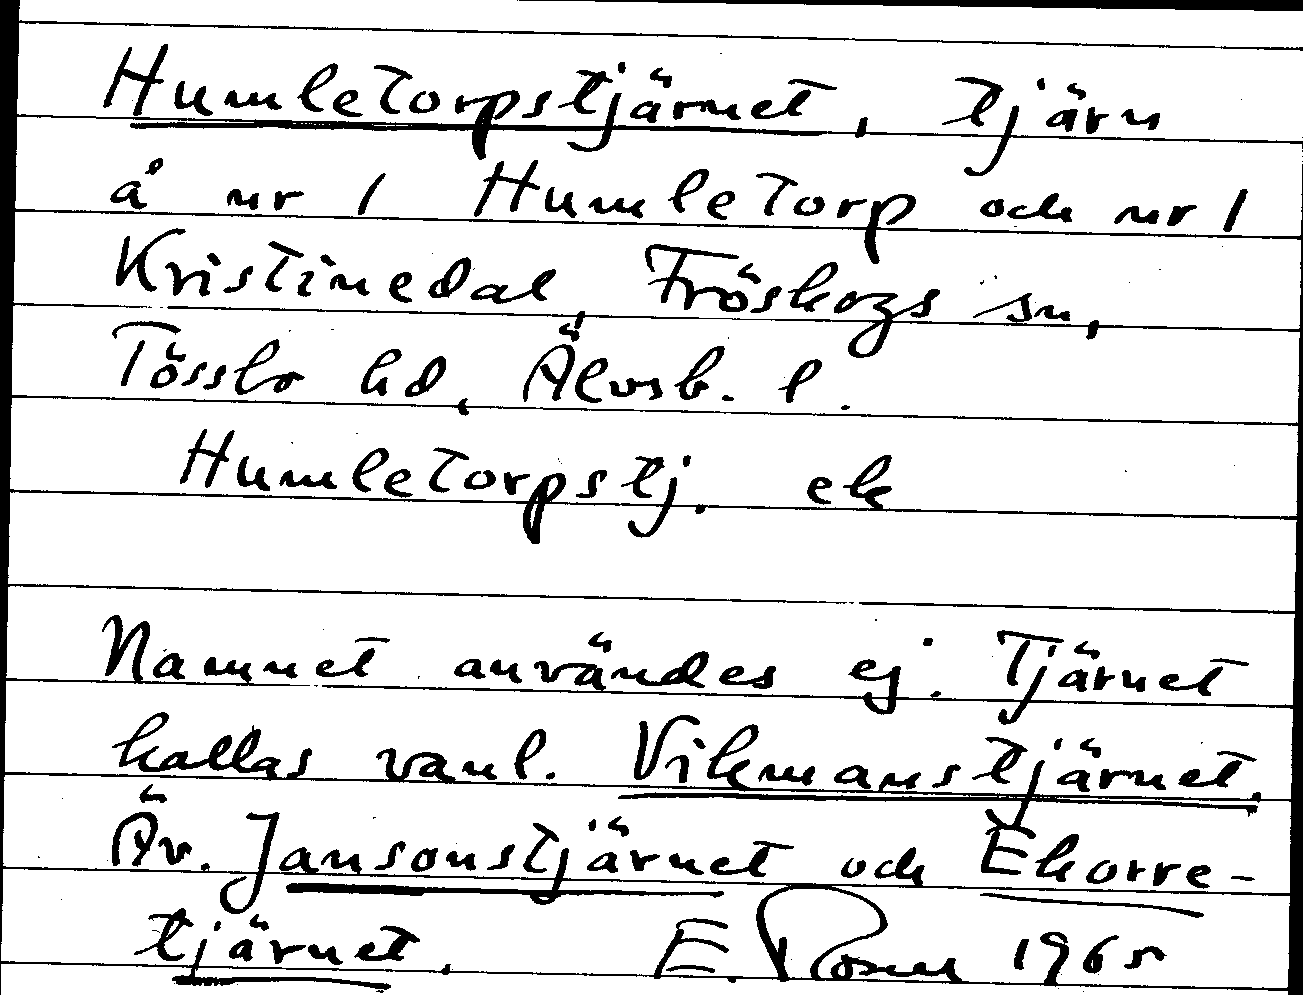 Humletorpstjärnet, tjärn
å nr 1 Humletorp och nr 1
Kristinedal, Fröskogs sn,
Tössbo hd, Älvsb. l.
Humletorpstj. ek
Namnet användes ej. Tjärnet
kallas vanl. Vikmanstjärnet.
Äv. Jansonstjärnet och Ekorre-
tjärnet. E. Rosen 1965